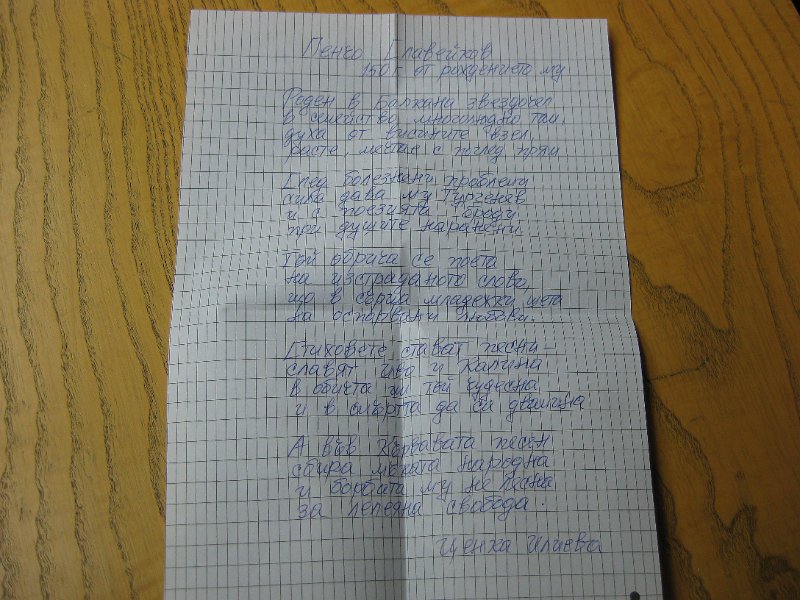 Пенчо Славейков
150 г от рождението му
Роден в Балкана звездочел
в семейство многолюдно той,
духа от висините взел,
расте, мечтае с поглед прям
След болезнени проблеми
сила дава му Тургенев
и с поезията броди
при душите наранени
Той обрича се поета
на изстраданото слово,
що в сърца младежки шета
на оспорвани любови.
Стиховете стават песни –
славят Ива и Калина
в обичта им той чудесна
и в смъртта да са двамина
А във Кървавата песен
сбира мъката народна
и борбата му не лесна
за лелеяна свобода.
Ценка Илиева